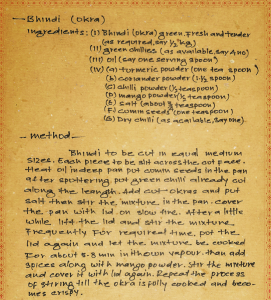 — Bhindi (Okra)
Ingredients: (I) Bhindi (okra) green, fresh and tender
(as required, say ½ kg)
(II) green chillies (as available, say 4 no)
(III) Oil (say one serving spoon)
(IV) (a) turmeric powder (one tea spoon)
(b) coriander powder (1-½ spoon)
(C) chilli powder (½ teaspoon)
(D) mango powder (½ teaspoon)
(E) salt (about ¾ teaspoon)
(F) Cumin seeds (one teaspoon)
(G) Dry chilli (as available, say one).
— method —
Bhindi to be cut in equal medium
sizes. Each piece to be slit across the cut face.
Heat oil indeep pan put cumin seeds in the pan
after spottering put green chilli already cut
along the length. Add cut-okras and put
salt than stir the mixture in the pan. cover
the pan with lid on slow fire. After a little
while lift the lid and stir the mixture
Frequently For required time, put the
lid again and let the mixture be cooked
For about 5-8 min in thown vapour. than add
spices along with mango powder. Stir the mixture
and cover it with lid again. Repeat the process
of stirring till the okra is folly cooked and beco-
mes crispy.